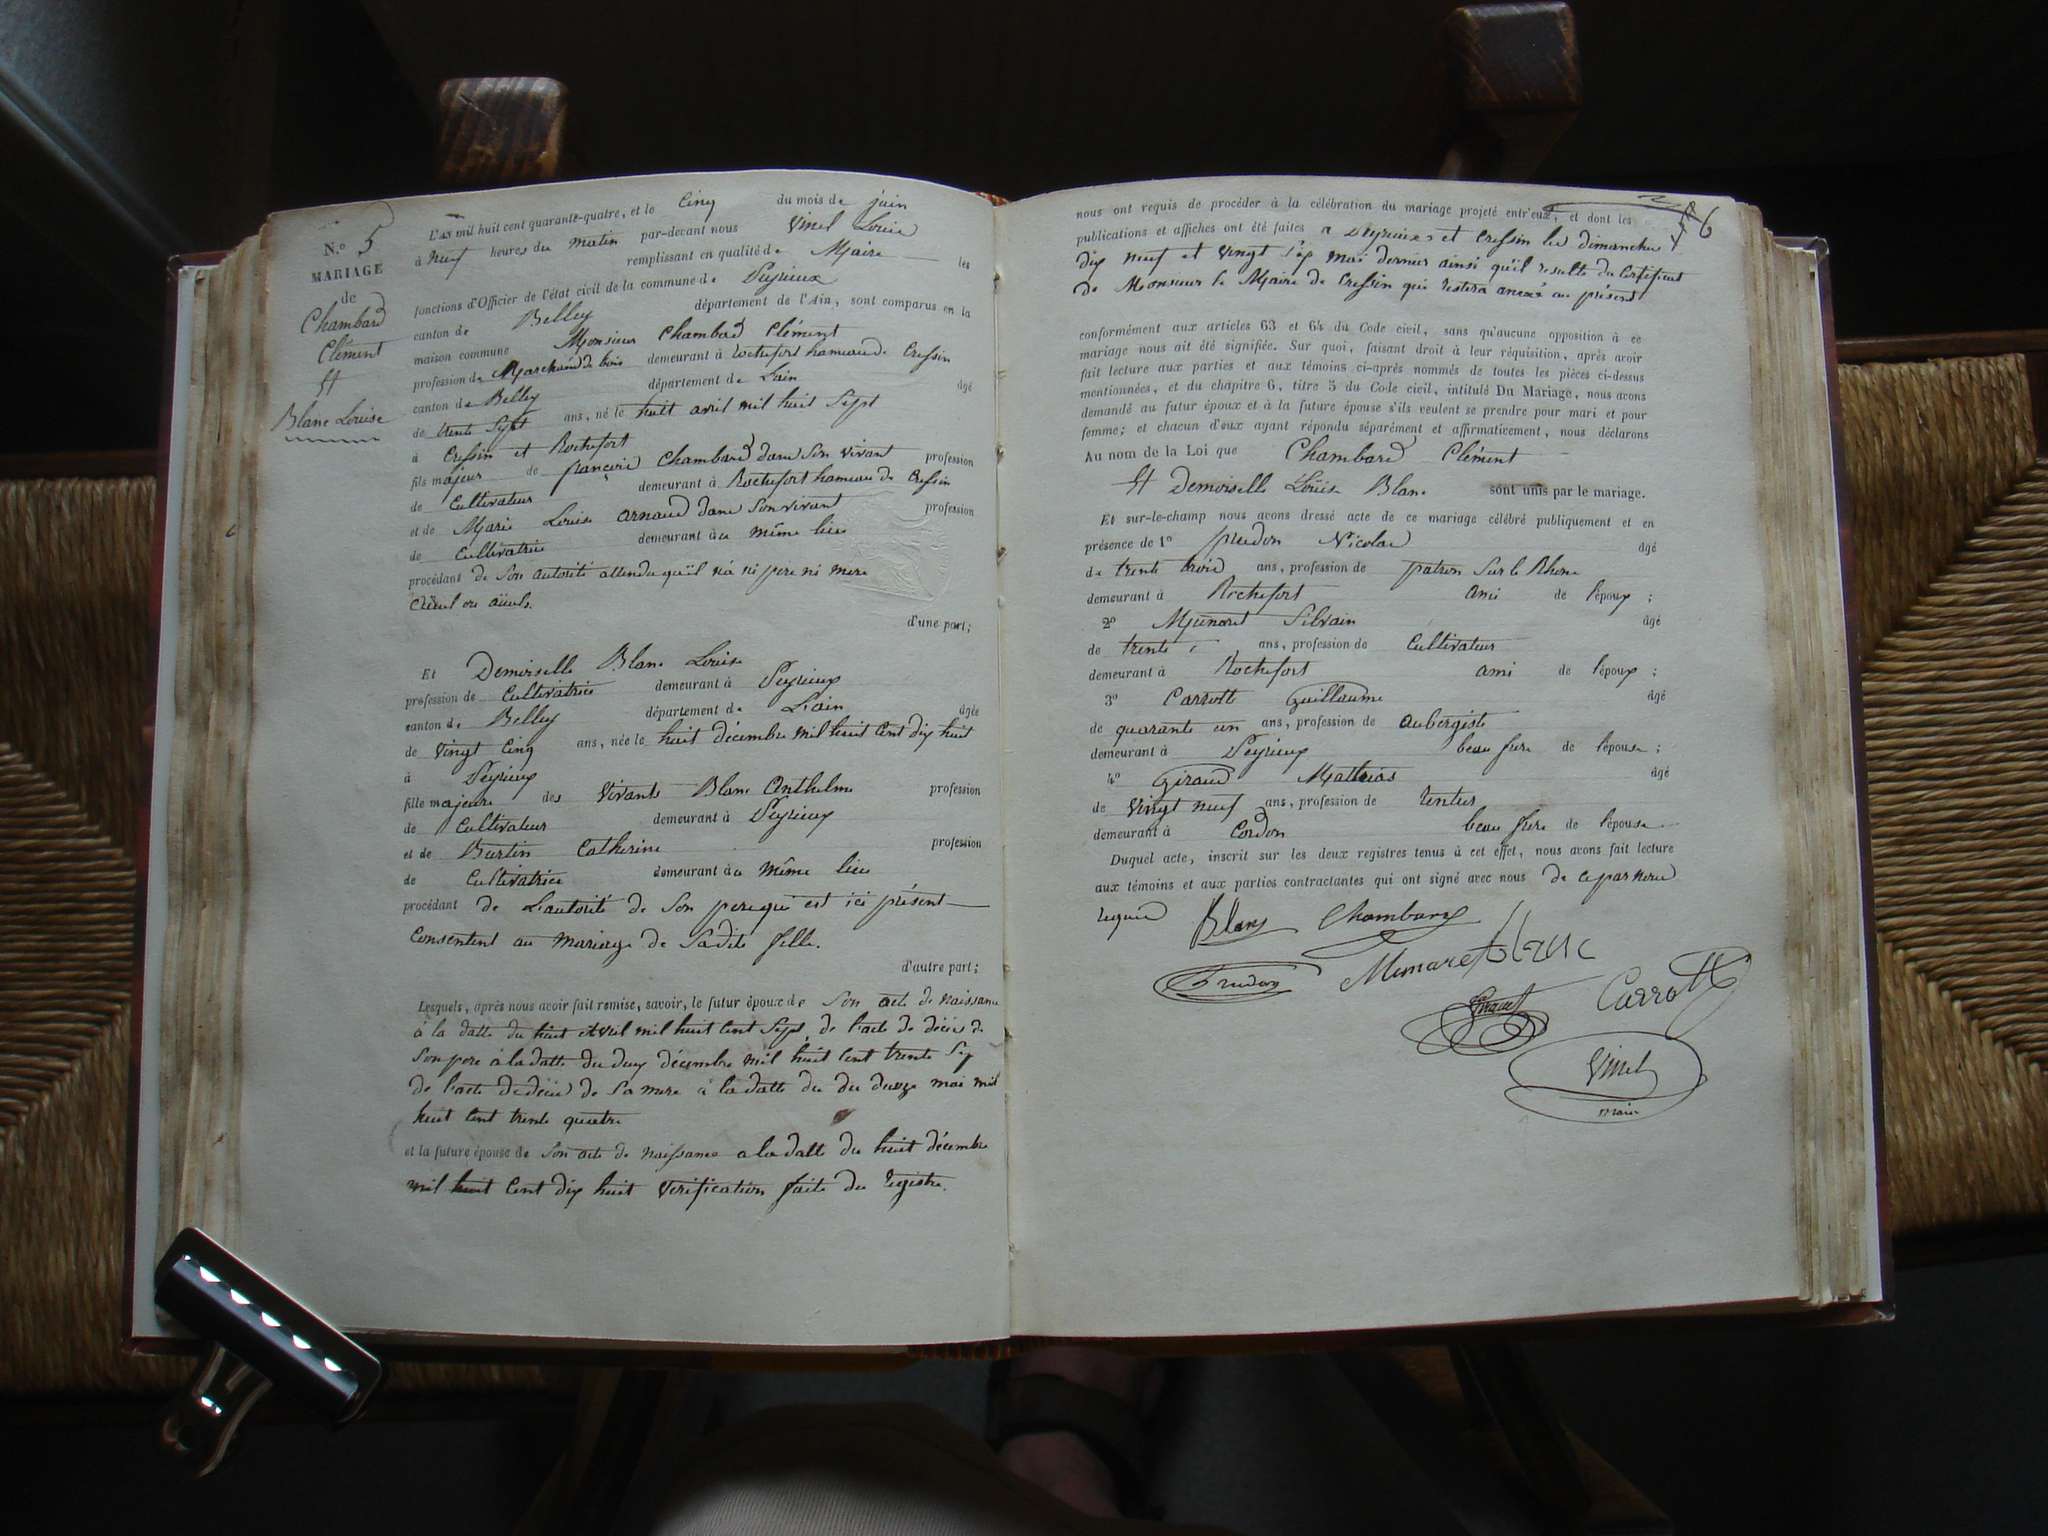 N.º 5
MARIAGE
de
Chambard
Clément
Et
Blanc Louise
L'AN mil huit cent quarante-quatre, et le Cinq du mois de juin
à neuf heures du matin par-devant nous Vinel Louis
remplissant en qualité de Maire les
fonctions d'Officier de l'état civil de la commune de Peyrieux
canton de Belley département de l'Ain, sont comparus en la
maison commune Monsieur Chambard Clément
profession de Marchand de bois demeurant à Rochefort hameau de Cressin
canton de Belley département de Lain âgé
de trente Sept ans, né le huit avril mil huit Sept
à Cressin et Rochefort
fils majeur de françois Chambard dans Son vivant profession
de Cultivateur demeurant à Rochefort hameau de Cressin
et de Marie Louise arnaud dans Son vivant profession
de Cultivatrice demeurant au même lieu
procédant de Son autorité attendu qu'il n'a ni pere ni mere
ayeul ou aïeuls.
d'une part;
Et Demoiselle Blanc Louise
profession de Cultivatrice demeurant à Peyrieux
canton de Belley département de L'ain âgée
de Vingt Cinq ans, née le huit décembre mil huit Cent dix huit
à Peyrieux
fille majeure des Vivants Blanc Anthelme profession
de Cultivateur demeurant à Peyrieux
et de Burtin Catherine profession
de Cultivatrice demeurant au même lieu
procédant de L'autorité de Son pere qui est ici présent
Consentent au Mariage de Sadite fille.
d'autre part;
Lesquels, après nous avoir fait remise, savoir, le futur époux de Son acte de naissance
à la datte du huit Avril mil huit Cent Sept, de l'acte de décès de
Son pere à la datte du deux décembre mil huit Cent trente Six
de l'acte de décès de Sa mere à la datte du du douze mai mil
huit Cent trente quatre
et la future épouse de Son acte de naissance a la datte du huit décembre
mil huit Cent dix huit Verification faite du registre.
56
nous ont requis de procéder à la célébration du mariage projeté entr'eux, et dont les
publications et affiches ont été faites a Peyrieux et Cressin les dimanches
dix neuf et Vingt Six mai dernier ainsi qu'il resulte du Certificat
de Monsieur le Maire de Cressin qui restera anexé au présent
conformément aux articles 63 et 64 du Code civil, sans qu'aucune opposition à ce
mariage nous ait été signifiée. Sur quoi, faisant droit à leur réquisition, après avoir
fait lecture aux parties et aux témoins ci-après nommés de toutes les pièces ci-dessus
mentionnées, et du chapitre 6, titre 5 du Code civil, intitulé Du Mariage, nous avons
demandé au futur époux et à la future épouse s'ils veulent se prendre pour mari et pour
femme; et chacun d'eux ayant répondu séparément et affirmativement, nous déclarons
Au nom de la Loi que Chambard Clément
Et Demoiselle Louise Blanc sont unis par le mariage.
Et sur-le-champ nous avons dressé acte de ce mariage célébré publiquement et en
présence de 1º prudon Nicolas âgé
de trente trois ans, profession de patron Sur le Rhone
demeurant à Rochefort ami de l'époux ;
2º Munaret Silvain âgé
de trente ans, profession de Cultivateur
demeurant à Rochefort ami de l'époux ;
3º Carrotte Guillaume âgé
de quarante un ans, profession de aubergiste
demeurant à Peyrieux beau frere de l'épouse ;
4º Giraud Mathias âgé
de Vingt neuf ans, profession de
demeurant à Cordon beau frere de l'épouse
Duquel acte, inscrit sur les deux registres tenus à cet effet, nous avons fait lecture
aux témoins et aux parties contractantes qui ont signé avec nous de ce par nous
requis Blanc Chambard
Prudon Munaret
Carrott
Vinel
maire